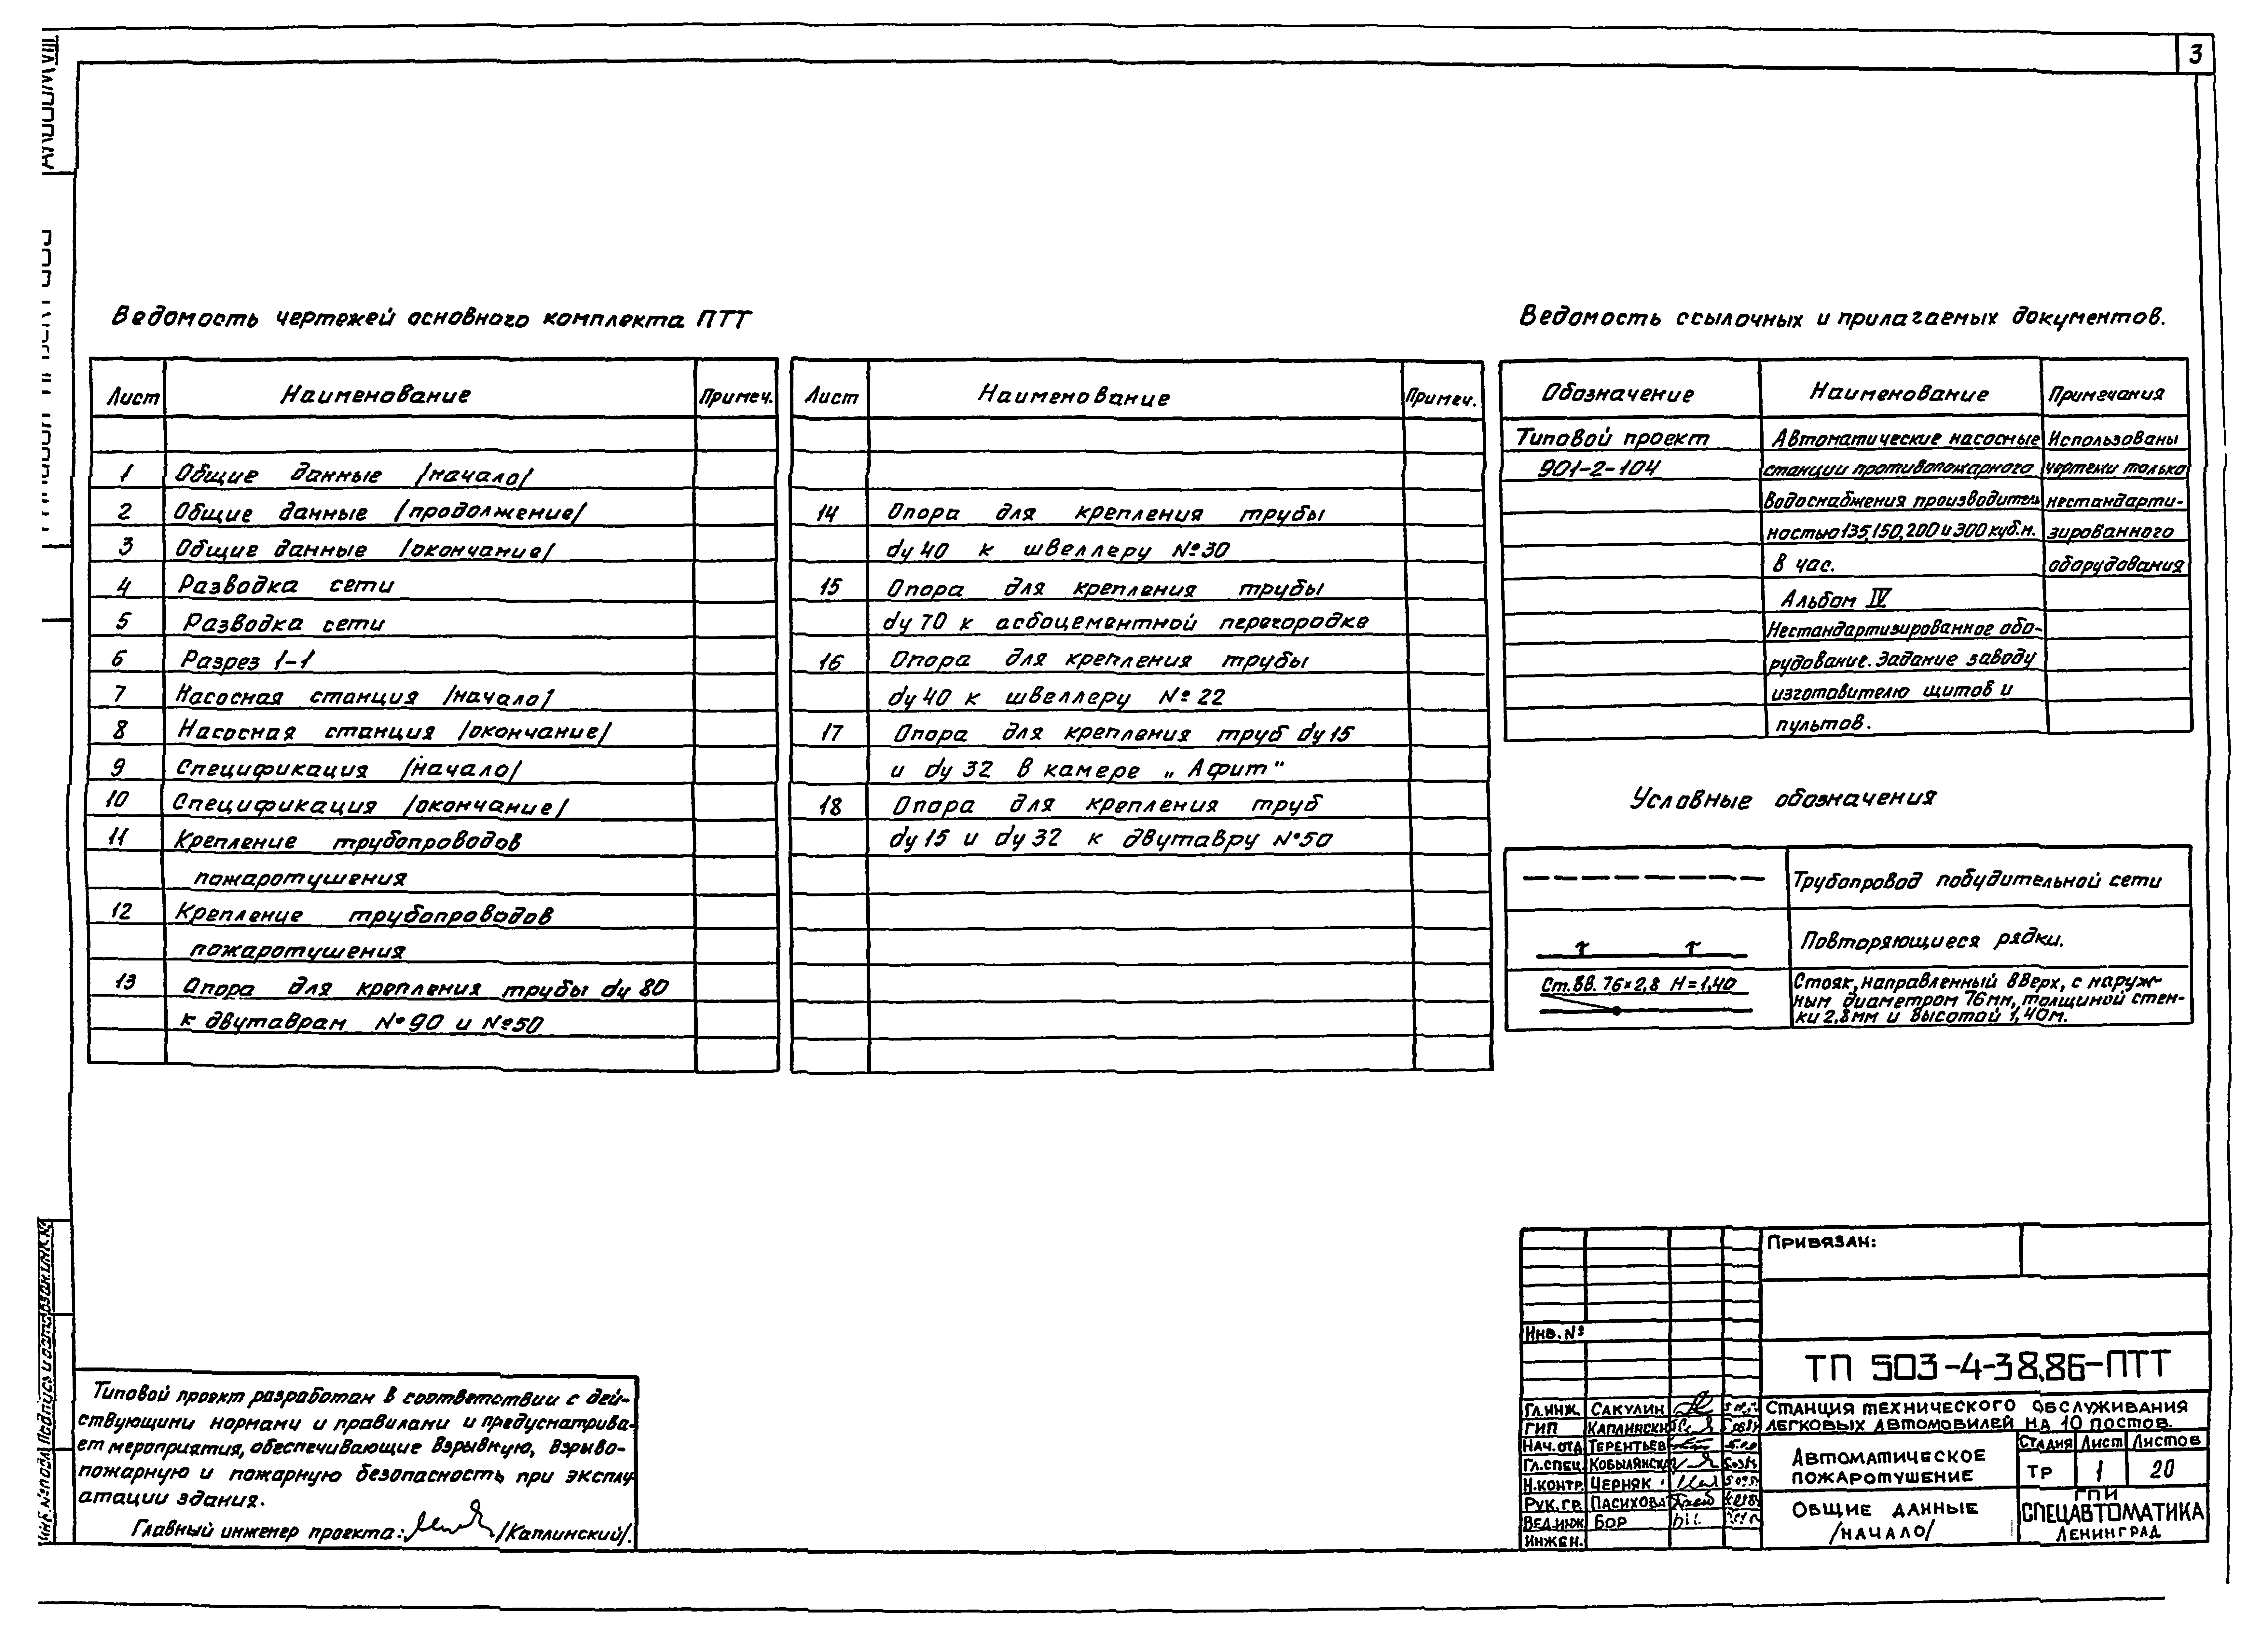 3
Ведомость чертежей основного комплекта ПТТ
Лист Наименование Примеч.
1 Общие данные /начало/
2 Общие данные /продолжение/
3 Общие данные /окончание/
4 Разводка сети
5 Разводка сети
6 Разрез 1-1
7 Насосная станция /начало/
8 Насосная станция /окончание/
9 Спецификация /начало/
10 Спецификация /окончание/
11 Крепление трубопроводов
пожаротушения
12 Крепление трубопроводов
пожаротушения
13 Опора для крепления трубы dу 80
к двутаврам №90 и №50
Лист Наименование Примеч.
14 Опора для крепления трубы
dу 40 к швеллеру №30
15 Опора для крепления трубы
dу 70 к асбоцементной перегородке
16 Опора для крепления трубы
dу 40 к швеллеру №22
17 Опора для крепления труб dу 15
и dу 32 в камере „Афит"
18 Опора для крепления труб
dу 15 и dу 32 к двутавру №50
Ведомость ссылочных и прилагаемых документов.
Обозначение Наименование Примечания
Типовой проект Автоматические насосные Использованы
901-2-104 станции противопожарного чертежи только
водоснабжения производитель нестандарти-
ностью 135,150,200 и 300 куб.м. зированного
в час. оборудования
Альбом IV
Нестандартизированное обо-
рудование. Задание заводу
изготовителю щитов и
пультов.
Условные обозначения
Трубопровод побудительной сети
Повторяющиеся рядки.
Ст.вв. 76×2,8 Н=1,40
Стояк, направленный вверх, с наруж-
ным диаметром 76мм, толщиной стен-
ки 2,8мм и высотой 1,40м.
Типовой проект разработан в соответствии с дей-
ствующими нормами и правилами и предусматрива-
ет мероприятия, обеспечивающие взрывную, взрыво-
пожарную и пожарную безопасность при эксплу
атации здания.
Главный инженер проекта: /Каплинский/.
Привязан:
Инв. №
ТП 503-4-38.86-ПТТ
Гл.инж. Сакулин
ГИП Каплинский
Нач.отд Терентьев
Гл.спец. Кобылянск
Н.контр. Черняк
Рук.гр. Пасихова
Вед.инж Бор
Инжен.
Станция технического обслуживания
легковых автомобилей на 10 постов.
Автоматическое
пожаротушение
Стадия Лист Листов
ТР 1 20
Общие данные
/начало/
ГПИ
Спецавтоматика
Ленинград
Инв.№подл. Подпись и дата Взам.инв.№